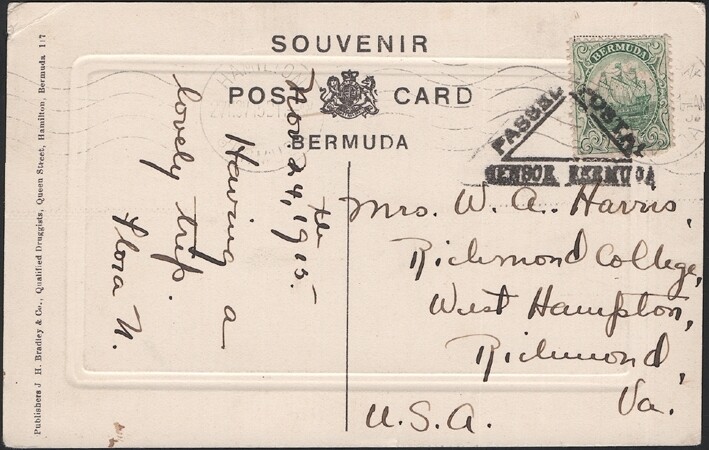 SOUVENIR
POST CARD
BERMUDA
Publishers J H. Bradley & Co., Qualified Druggists, Queen Street, Hamilton, Bermuda 1:7
BERMUDA
PASSED POSTAL
CENSOR BERMUDA
HAMILTON
Nov. 24th, 1915.
Having a
lovely trip.
Flora N.
Mrs. W. A. Harris,
Richmond College,
West Hampton,
Richmond,
Va.
U.S.A.